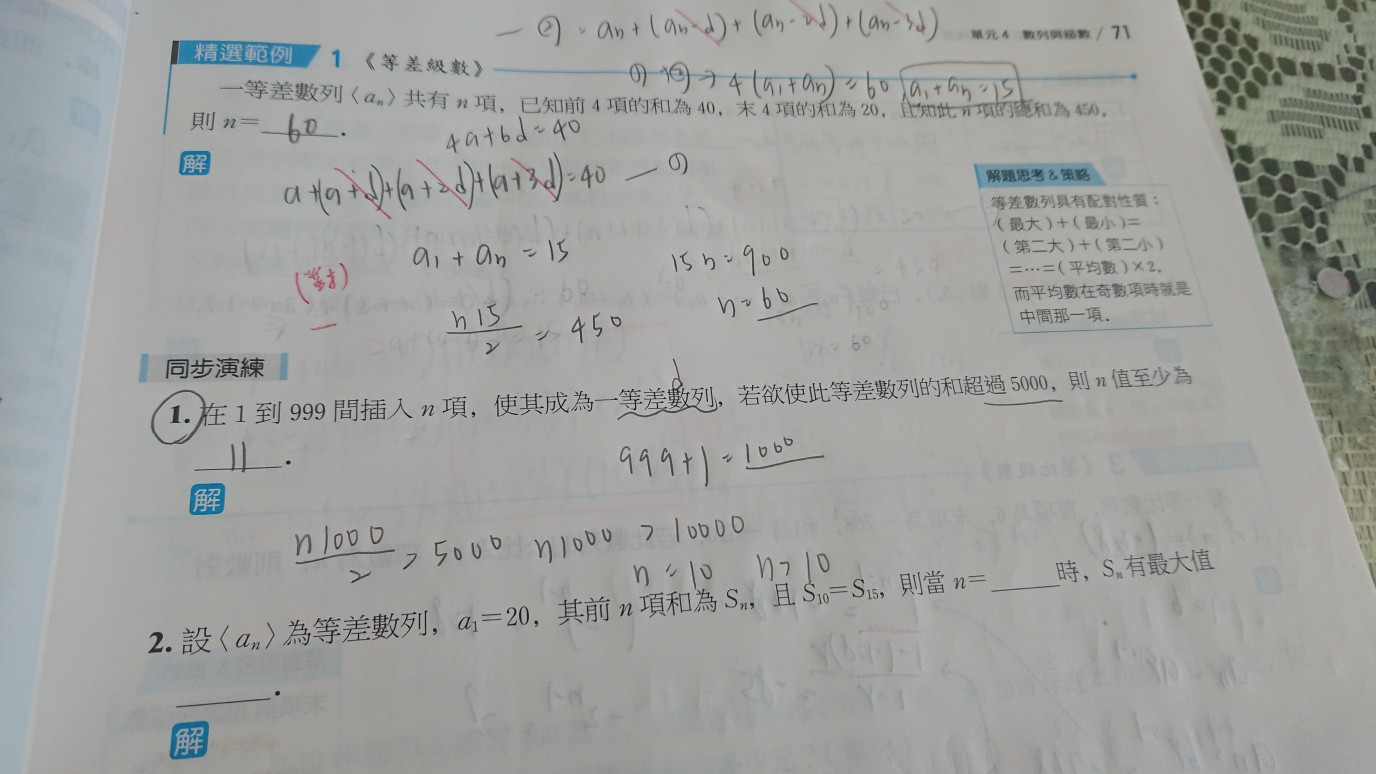 — ② = an + (an-d) + (an-2d) + (an-3d)
單元 4 數列與級數 / 71
精選範例 1 《等差級數》
①+②→ 4(a1+an) = 60 a1+an=15
一等差數列〈an〉共有 n 項，已知前 4 項的和為 40，末 4 項的和為 20，且知此 n 項的總和為 450，
則 n= 60 .
4a+6d=40
解
a+(a+d)+(a+2d)+(a+3d)=40 — ①
解題思考 & 策略
等差數列具有配對性質：
（最大）+（最小）=
（第二大）+（第二小）
=…=（平均數）×2，
而平均數在奇數項時就是
中間那一項．
a1 + an = 15
15n=900
n=60
n15/2 = 450
同步演練
d
1. 在 1 到 999 間插入 n 項，使其成為一等差數列，若欲使此等差數列的和超過 5000，則 n 值至少為
11 .
999+1=1000
解
n1000/2 > 5000 n1000 > 10000
n = 10 n>10
2. 設〈an〉為等差數列，a1=20，其前 n 項和為 Sn，且 S10=S15，則當 n= ______ 時，Sn 有最大值
______ .
解